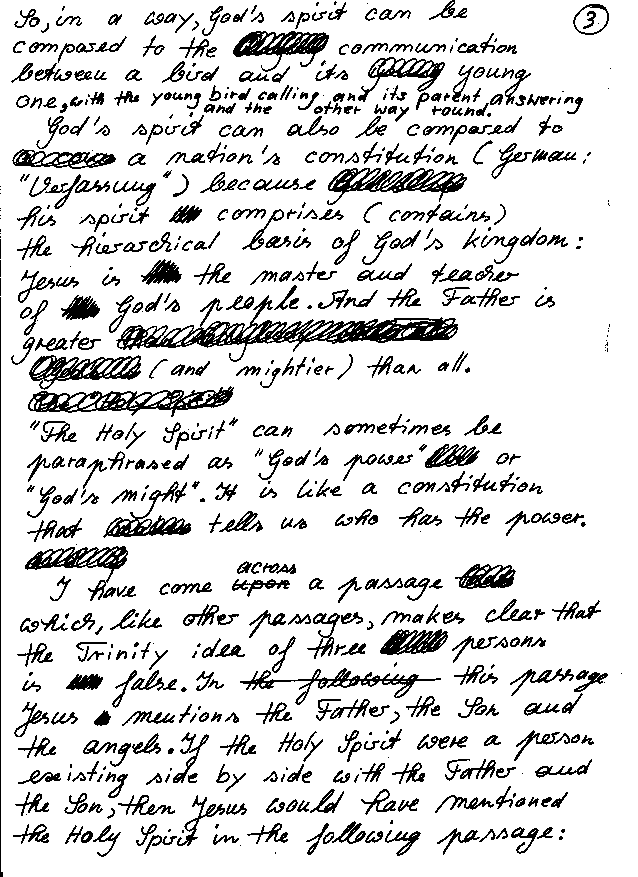 3.
So, in a way, God's spirit can be
compared to the communication
between a bird and its young
one, with the young bird calling and its parent answering
and the other way round.
God's spirit can also be compared to
a nation's constitution (German:
"Verfassung") because
his spirit comprises (contains)
the hierarchical basis of God's kingdom:
Jesus is the master and teacher
of God's people. And the Father is
greater
(and mightier) than all.
"The Holy Spirit" can sometimes be
paraphrased as "God's power" or
"God's might". It is like a constitution
that tells us who has the power.
across
I have come upon a passage
which, like other passages, makes clear that
the Trinity idea of three persons
is false. In the following this passage
Jesus mentions the Father, the Son and
the angels. If the Holy Spirit were a person
existing side by side with the Father and
the Son, then Jesus would have mentioned
the Holy Spirit in the following passage: